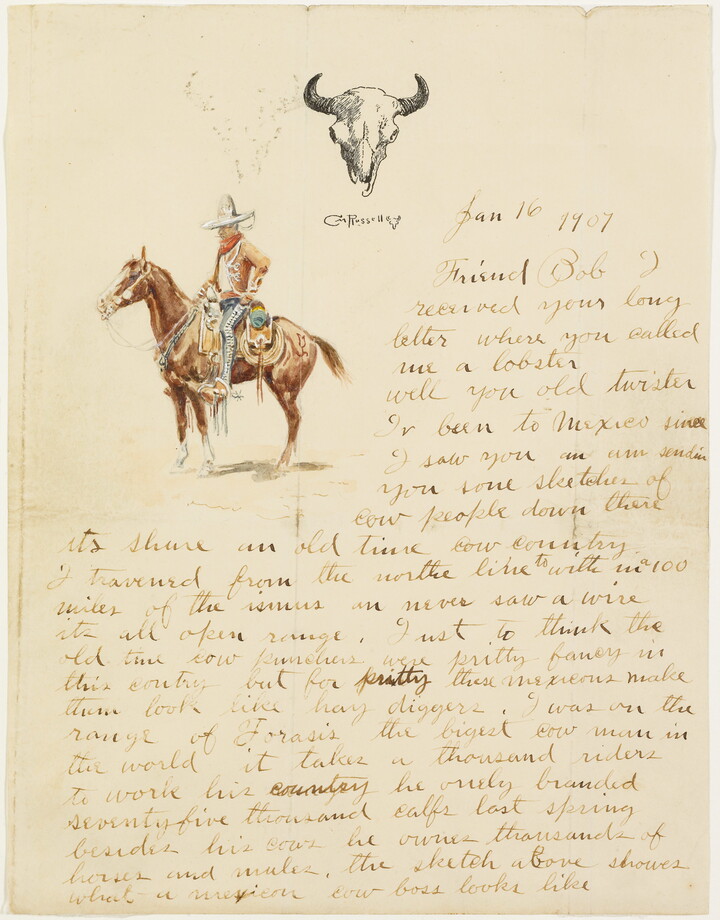 CM Russell
Jan 16 1907
Friend Bob I
received your long
letter where you called
me a lobster
well you old twister
Iv been to Mexico since
I saw you an am sendin
you some sketches of
cow people down there
its shure an old time cow country
I travened from the northe line to with in a 100
miles of the ismus an never saw a wire
its all open range. I ust to think the
old time cow punchers were pritty fancy in
this contry but for pritty these mexicons make
them look like hay diggers. I was on the
range of Torasis the bigest cow man in
the world it takes a thousand riders
to work his country he onely branded
seventyfive thousand calfs last spring
besides his cows he ownes thousands of
horses and mules. the sketch above showes
what a mexicon cow boss looks like